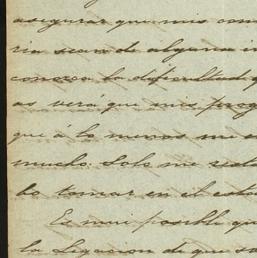 asegurar que mis com
ria sean de alguna in
conozca la dificultad q
as verá que mis prog
que á lo menos me e
mucho. Solo me resta
bo tomar en el estu
Es mui posible que
la Legacion de que so